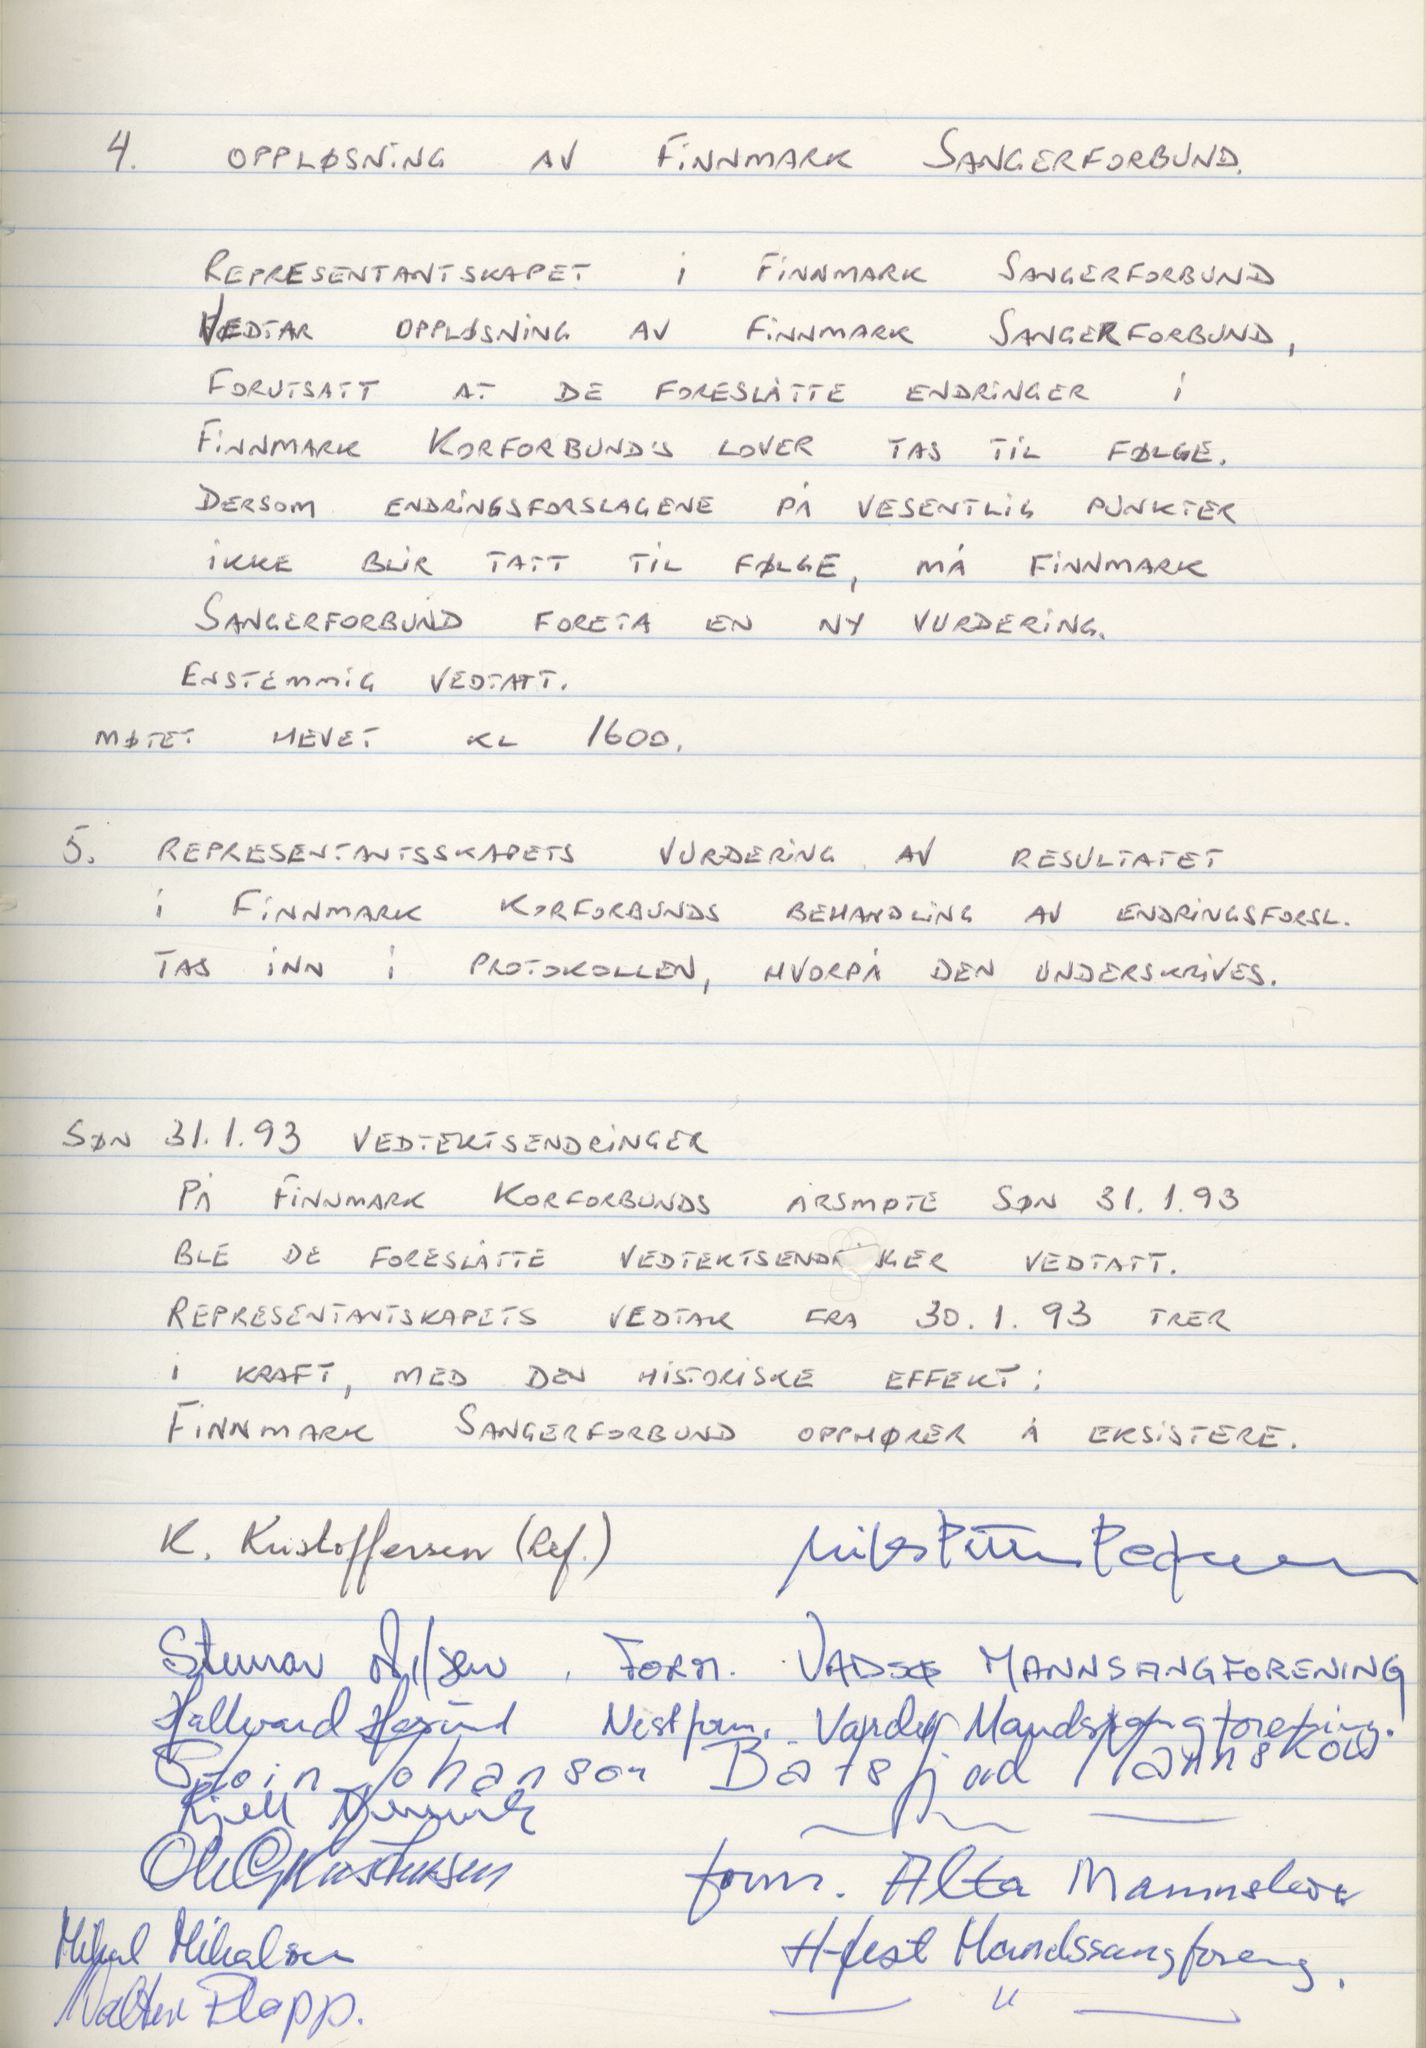 4. OPPLØSNING AV FINNMARK SANGERFORBUND.
REPRESENTANTSKAPET I FINNMARK SANGERFORBUND
VEDTAR OPPLØSNING AV FINNMARK SANGERFORBUND,
FORUTSATT AT DE FORESLÅTTE ENDRINGER I
FINNMARK KORFORBUND'S LOVER TAS TIL FØLGE.
DERSOM ENDRINGSFORSLAGENE PÅ VESENTLIG PUNKTER
IKKE BLIR TATT TIL FØLGE, MÅ FINNMARK
SANGERFORBUND FORETA EN NY VURDERING.
ENSTEMMIG VEDTATT.
MØTET HEVET KL 1600.
5. REPRESENTANTSSKAPETS VURDERING AV RESULTATET
I FINNMARK KORFORBUNDS BEHANDLING AV ENDRINGSFORSL.
TAS INN I PROTOKOLLEN, HVORPÅ DEN UNDERSKRIVES.
SØN 31.1.93 VEDTEKTSENDRINGER
PÅ FINNMARK KORFORBUNDS ÅRSMØTE SØN 31.1.93
BLE DE FORESLÅTTE VEDTEKTSENDRINGER VEDTATT.
REPRESENTANTSKAPETS VEDTAK FRA 30.1.93 TRER
I KRAFT, MED DEN HISTORISKE EFFEKT:
FINNMARK SANGERFORBUND OPPHØRER Å EKSISTERE.
K. Kristoffersen (Ref.)
FORM. VADSØ MANNSANGFORENING
Hallvard Nestform. Vardø Mandssangforening.
Stein Johanson Båtsfjord Mannskor
Kjell
form. Alta Mannskor
Mikal Mikalsen H-fest Mandssangforeng.
Walter Flapp. — " —